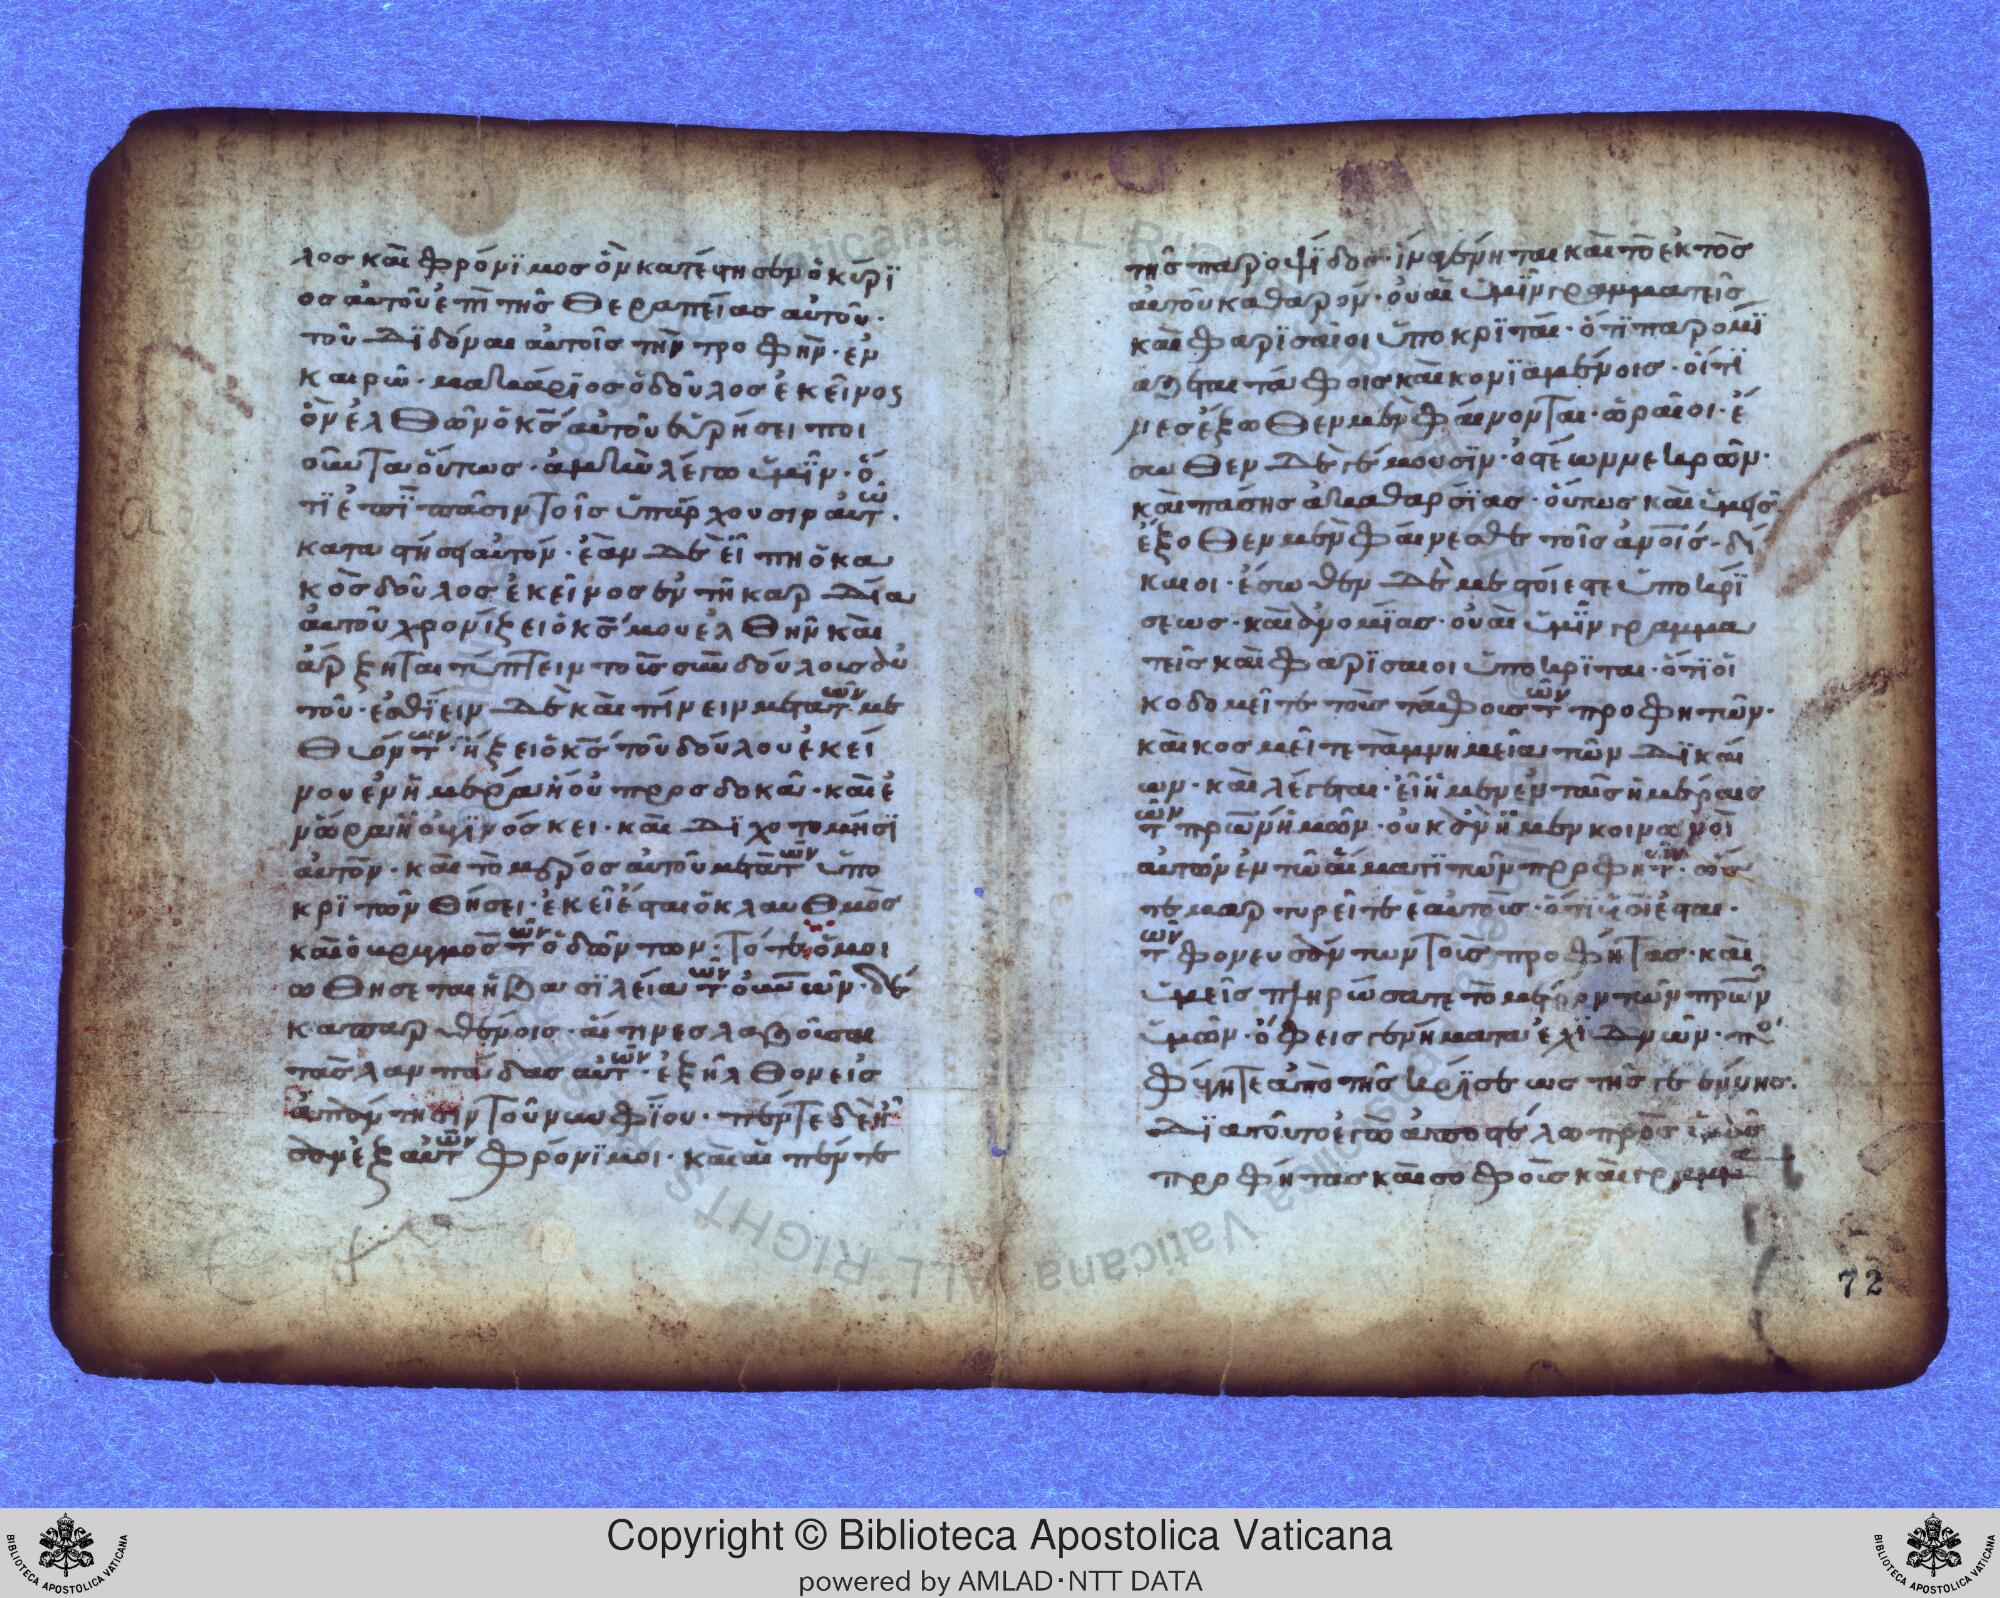 λος καὶ φρόνϊμος ὃν κατέστησεν ὁ κύρϊ
ος αὐτοῦ ἐπὶ τῆς θεραπείας αὐτοῦ·
τοῦ δϊδόναι αὐτοῖς τὴν τροφὴν· ἐν
καιρῶ· μακάρϊος ὁ δοῦλος ἐκεῖνος
ὃν ἐλθὼν ὁ κς αὐτοῦ εὑρήσει ποι
οῦντα οὕτως· ἀμὴν λέγω ὑμῖν· ὅ
τϊ ἐπὶ πᾶσιν τοῖς ὑπάρχουσιν αὐτ
καταστήσει αὐτόν· ἐὰν δὲ εἴπη ὁ κα
κὸς δοῦλος ἐκεῖνος ἐν τῆ καρδία
αὐτοῦ χρονίζει ὁ κς μου ἐλθῆν καὶ
ἄρξηται τύπτειν τοὺς συνδούλους αὐ
τοῦ· ἐσθίειν δὲ καὶ πίνειν μετα τῶν με
θυόντων· ἥξει ὁ κς τοῦ δούλου ἐκεί
νου ἐν ἡμέρα ἧ οὐ προσδοκᾶ· καὶ ἐ
ν ὥρα ἧ οὐ γϊνόσκει· καὶ δϊχοτομήσϊ
αὐτὸν· καὶ τὸ μέρος αὐτοῦ μετὰ τῶν ὑπο
κρϊτῶν θήσει· ἐκεῖ ἔσται ὁ κλαυθμὸς
καὶ ὁ βρυγμὸς τῶν ὀδώντων· Τότε ὁμοι
ωθησεται ἡ βασϊλεία τῶν οὐνῶν· δέ
κα παρθένοις· αἵτινες λαβοῦσαι
τὰς λαμπάδας αὐτῶν· ἐξῆλθον εἰς
ἀπάντησιν τοῦ νυμφίου· πέντε δὲ ἦ
σαν ἐξ αὐτῶν φρόνϊμοι· καὶ αἱ πέντε
τῆς παροψΐδος· ἵνα γένηται καὶ τὸ ἐκτὸς
αὐτοῦ καθαρόν· οὐαὶ ὑμῖν γραμματεῖς
καὶ φαρϊσαῖοι ὑποκρϊταί· ὅτϊ παρομϊ
άζεται τάφοις κεκονϊαμένοις· οἵτϊ
νες ἔξωθεν μὲν φαίνονται· ὡραῖοι· ἔ
σωθεν δὲ γέμουσϊν· ὀστέων νεκρῶν·
καὶ πάσης ἀκαθαρσΐας· οὕτως καὶ ὑμεῖς
ἔξοθεν μὲν φαίνεσθε τοῖς ἀνοῖς· δί
καιοι· ἔσωθεν δὲ μεστοί ἐστε ὑποκρΐ
σεως· καὶ ἀνομΐας· οὐαὶ ὑμῖν γραμμα
τεῖς καὶ φαρϊσαιοι ὑποκρϊται· ὅτϊ οἰ
κοδομεῖτε τοὺς τάφους τῶν προφητῶν·
καὶ κοσμεῖτε τὰ μνημεῖα τῶν δϊκαί
ων· καὶ λέγεται· εἰ ἦμεν ἐν ταῖς ἡμέραις
τῶν πρων ἡμῶν· οὐκ ἂν ἦμεν κοινωνοὶ
αὐτῶν ἐν τῶ αἵματϊ τῶν προφητῶν· ὥσ
τε μαρτυρεῖτε ἑαυτοῖς· ὅτϊ υἱοί ἐσται·
τῶν φονευσάντων τοὺς προφήτας· καὶ
ὑμεῖς πληρώσατε τὸ μέτρον τῶν πρων
ὑμῶν· ὄφεις γενήματα ἐχϊδνῶν· πῶ
φύγητε ἀπὸ τῆς κρΐσεως τῆς γεέννης·
Δϊατοῦτο ἐγὼ ἀποστέλω πρὸς ὑμᾶς
προφήτας καὶ σοφοὺς καὶ γραμμα
72
Copyright © Biblioteca Apostolica Vaticana
powered by AMLAD·NTT DATA
BIBLIOTECA APOSTOLICA VATICANA
BIBLIOTECA APOSTOLICA VATICANA